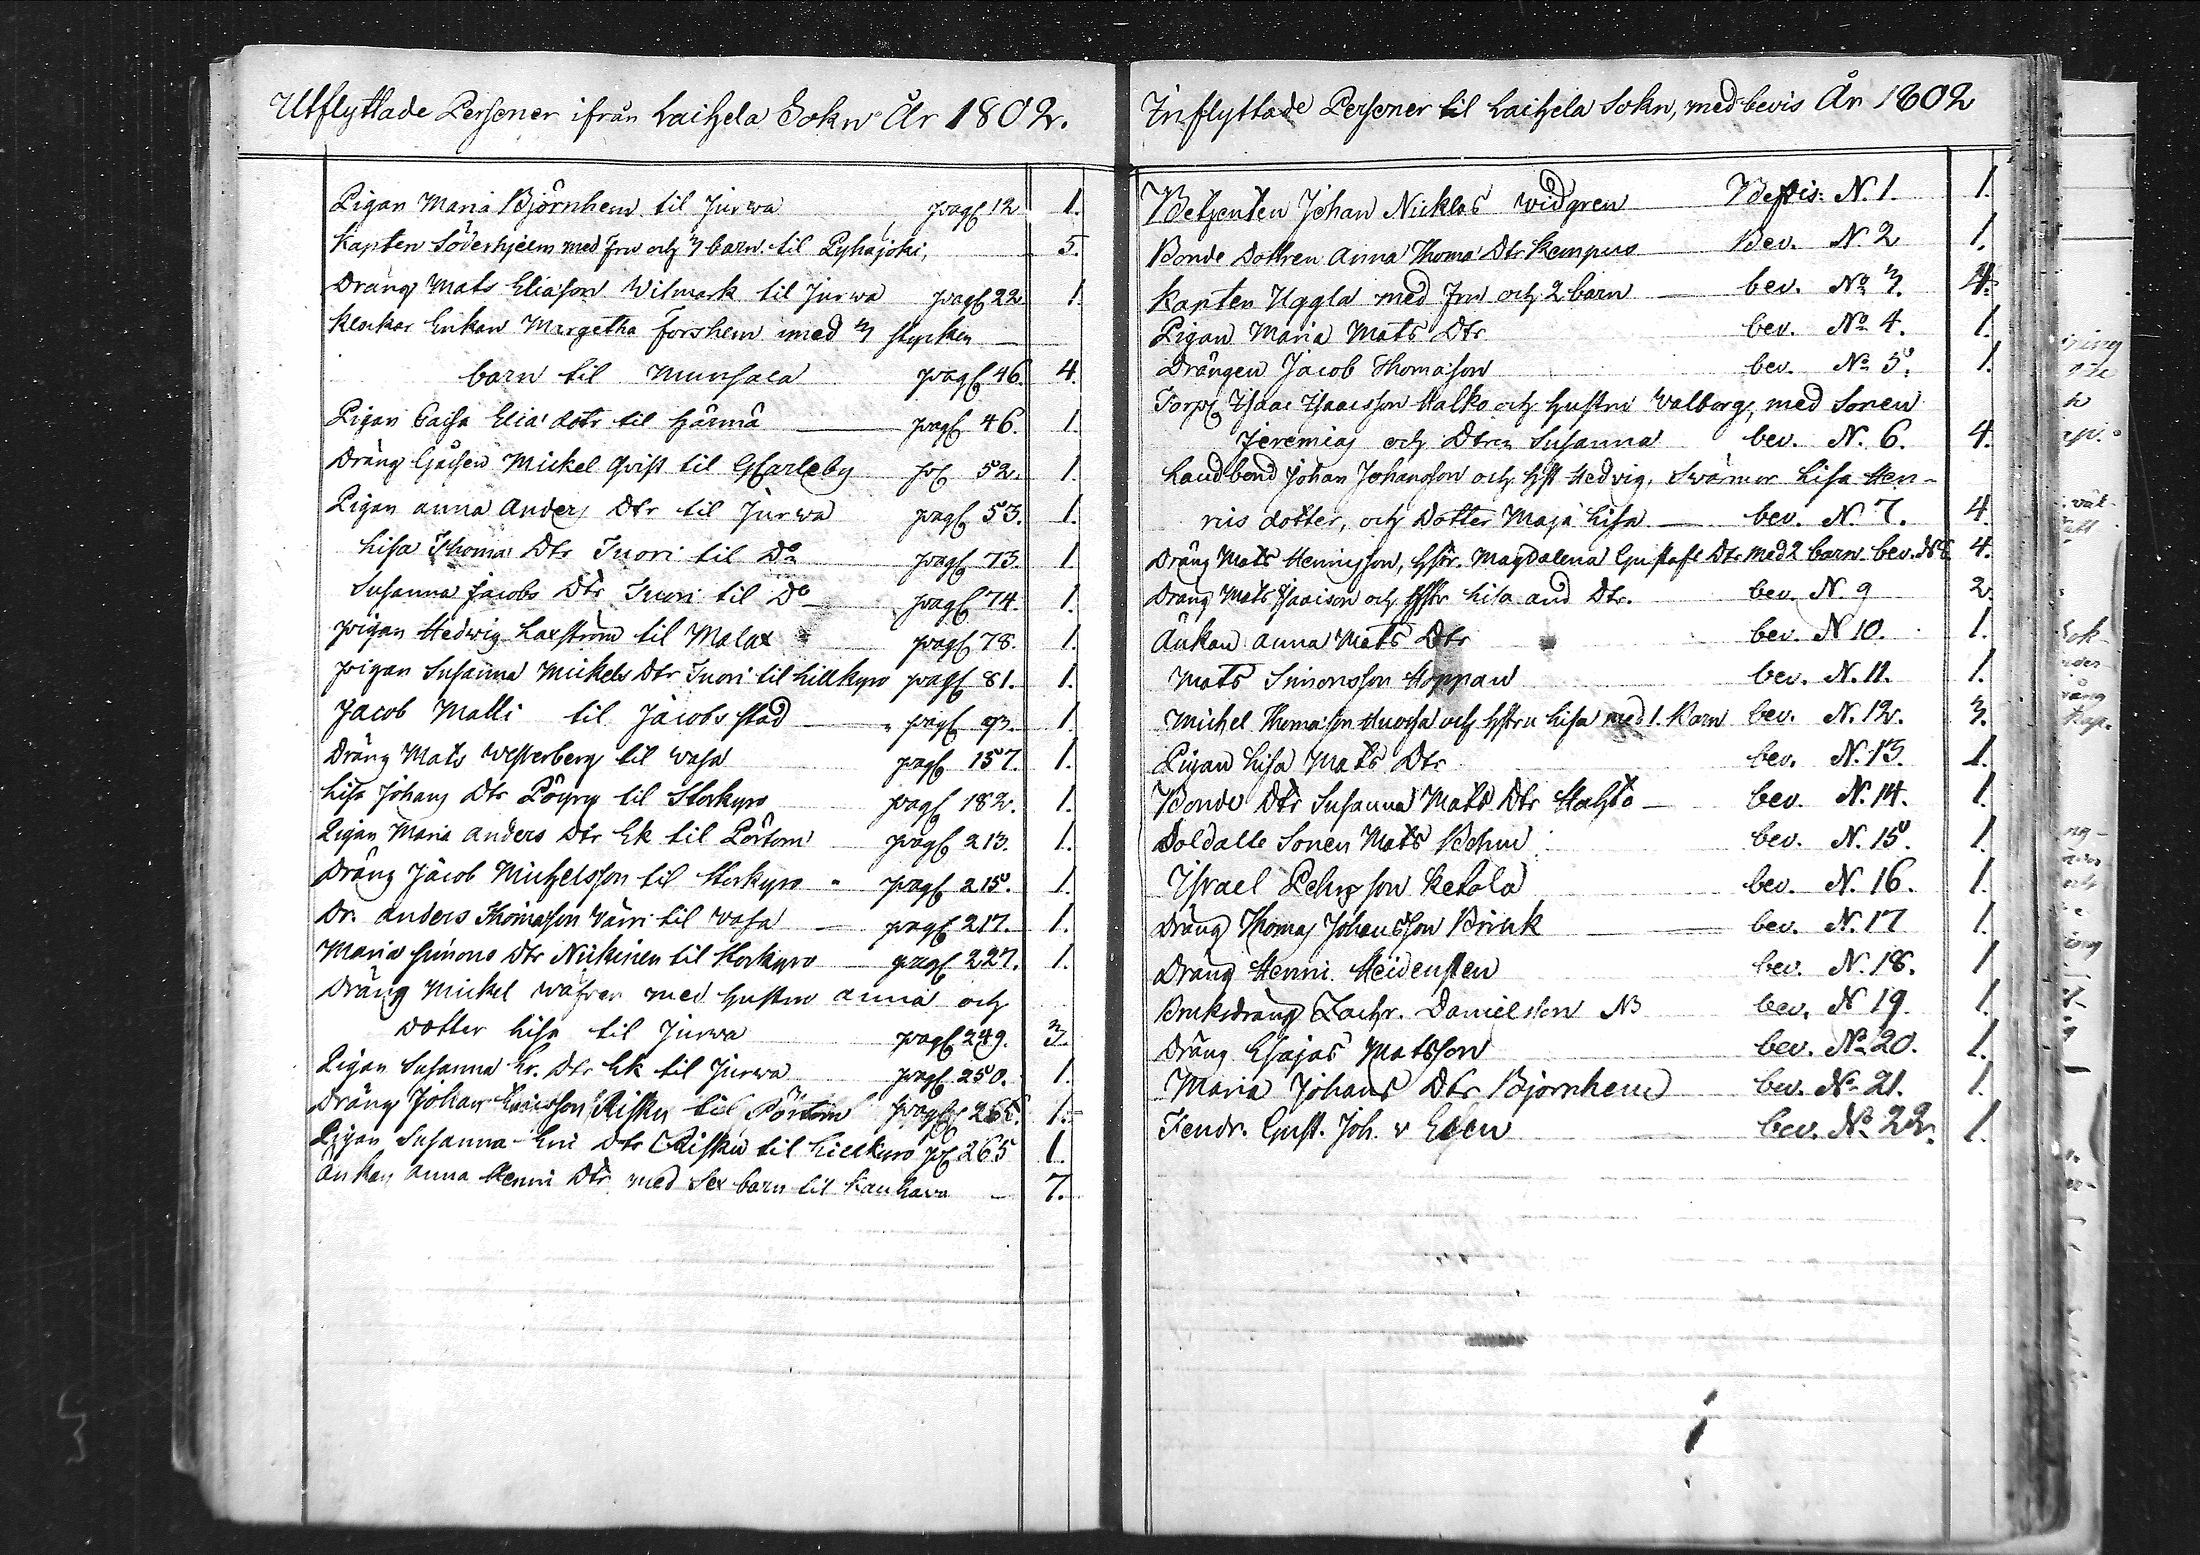 Utflyttade Personer ifrån Laihela Sokn År 1802.
Pigan Maria Björnhem til Jurwa pag 12 1.
Kapten Söderhjelm med Fru och 3 barn til Pyhäjoki, 5.
Dräng Mats Eliason Wilmark til Jurwa pag 22 1.
Klockar Enkan Margetha Forshem med 3 stycken
barn til Munsala pag 46. 4.
Pigan Caisa Elia dotr til Härmä pag 46. 1.
Dräng Mickel Qvist til GCarleby p 52. 1.
Pigan Anna Anders Dtr til Jurwa pag 53. 1.
Lisa Thoma Dtr Iuori til Do pag 73. 1.
Susanna Jacobs Dtr Iuori til Do pag 74. 1.
pigan Hedwig Laxström til Malax pag 78. 1.
pigan Susanna Mickels Dtr Iuori til Lillkyro pag 81. 1.
Jacob Matti til Jacobs stad pag 93. 1.
Dräng Mats Westerberg til Wasa pag 157. 1.
Lisa Johans Dtr Pöyry til Storkyro pag 182. 1.
Pigan Maria Anders Dtr Ek til Pörtom pag 213. 1.
Dräng Jacob Michelsson til Storkyro pag 215. 1.
Dr. Anders Thomasson Wärri til Wasa pag 217. 1.
Maria Simons Dtr Niikinen til Storkyro pag 227. 1.
Dräng Mickel med hustru Anna och
dotter Lisa til Jurwa pag 249. 3.
Pigan Susanna Er. Dtr Ek til Jurwa pag 250. 1.
Dräng Johan Ericsson Risku til Pörtom pag 265. 1.
Pigan Susanna Eric Dtr Risku til Lillkyro p 265 1.
Änkan Anna Henric Dtr med Sex barn til Kauhava 7.
Inflyttade Personer til Laihela Sokn, med bevis År 1802
Betjenten Johan Nicklas Widgren Bevis: N. 1. 1.
Bonde Dottren Anna Thoma Dtr Kempas Bev. N 2 1.
Kapten Uggla med Fru och 2 barn bev. No 3. 4.
Pigan Maria Mats Dtr bev. No 4. 1.
Drängen Jacob Thomason bev. No 5. 1.
Torp Isaac Isaacsson Malko och hustru Walborg, med Sonen
Jeremias och Dtren Susanna bev. N. 6. 4.
Landbond Johan Johansson och hst Hedvig, Svärmor Lisa Hen-
ris dotter, och Dotter Maja Lisa bev. N. 7. 4.
Dräng Mats Henrisson, hstr. Magdalena Gustafs Dtr med 2 barn bev. N 8 4.
Dräng Mats Isaaison och hstr Lisa And Dtr. bev. N. 9 2.
Änkan Anna Mats Dtr bev. N 10. 1.
Mats Simonsson Hoppan bev. N. 11. 1.
Michel Thomason och hstru Lisa med 1. Barn bev. N. 12. 3.
Pigan Lisa Mats Dtr bev. N. 13. 1.
Bonde Dtr Susanna Mats Dtr bev. N. 14. 1.
Soldatte Sonen Mats Behm bev. N. 15. 1.
Israel Pehrsson Ketola bev. N. 16. 1.
Dräng Thomas Johansson Brink bev. N. 17 1.
Dräng Henric Heidensten bev. N. 18. 1
Bruksdräng Zachr. Danielsson NB bev. N 19. 1.
Dräng Esajas Matsson bev. No 20. 1.
Maria Johans Dtr Bjornhem bev. No 21. 1.
Fendr. Gust. Joh. v Essen bev. No 22. 1.